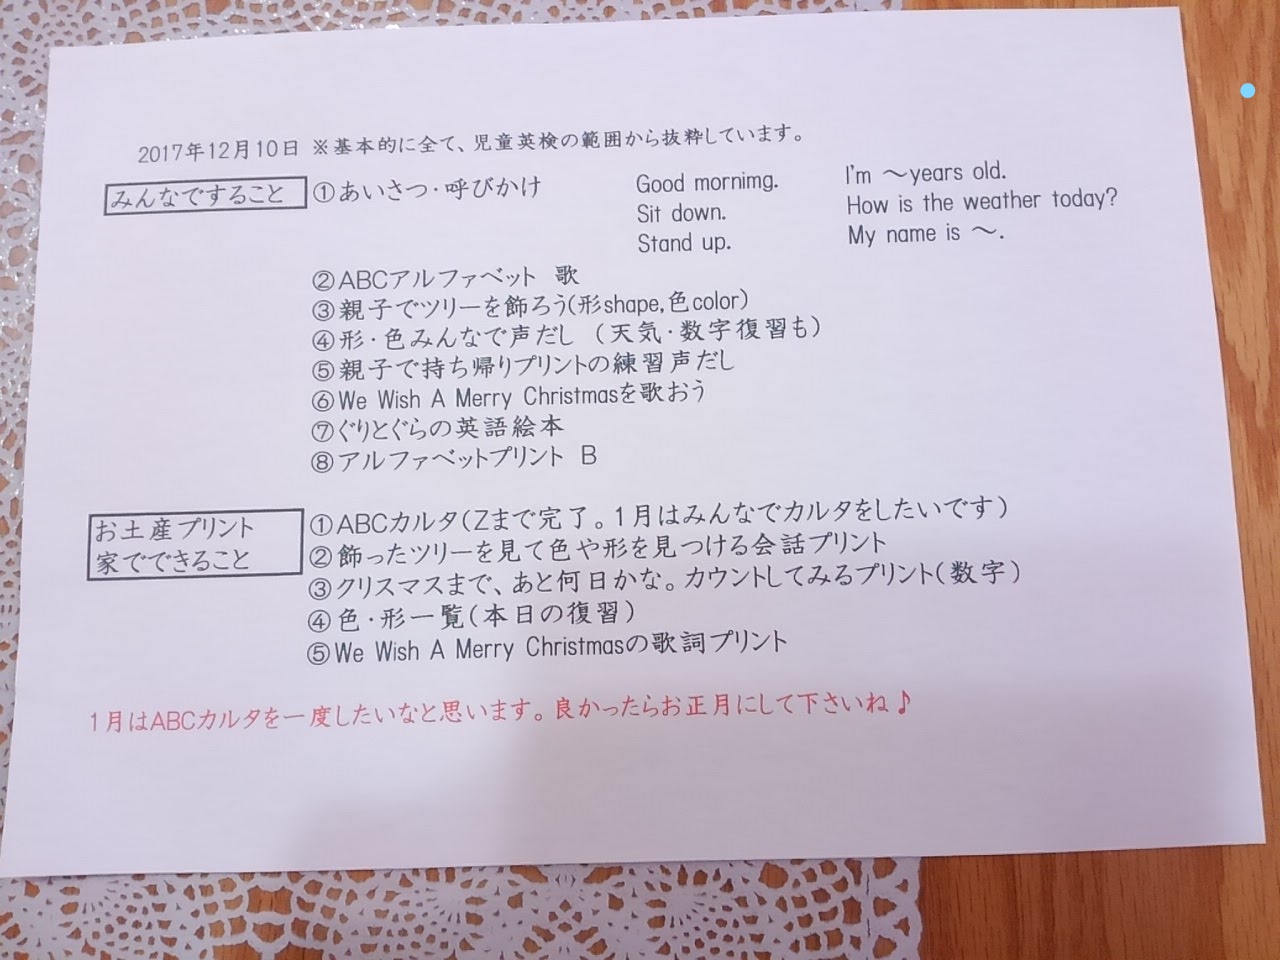 2017年12月10日 ※基本的に全て、児童英検の範囲から抜粋しています。
みんなですること ①あいさつ・呼びかけ Good mornimg. I'm ～years old.
Sit down. How is the weather today?
Stand up. My name is ～.
②ABCアルファベット 歌
③親子でツリーを飾ろう(形shape,色color)
④形・色みんなで声だし （天気・数字復習も）
⑤親子で持ち帰りプリントの練習声だし
⑥We Wish A Merry Christmasを歌おう
⑦ぐりとぐらの英語絵本
⑧アルファベットプリント B
お土産プリント
家でできること
①ABCカルタ（Zまで完了。1月はみんなでカルタをしたいです）
②飾ったツリーを見て色や形を見つける会話プリント
③クリスマスまで、あと何日かな。カウントしてみるプリント（数字）
④色・形一覧（本日の復習）
⑤We Wish A Merry Christmasの歌詞プリント
1月はABCカルタを一度したいなと思います。良かったらお正月にして下さいね♪